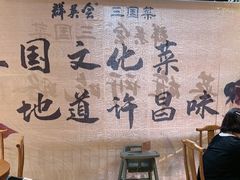 群英会 三国菜
三国文化菜
地道许昌味